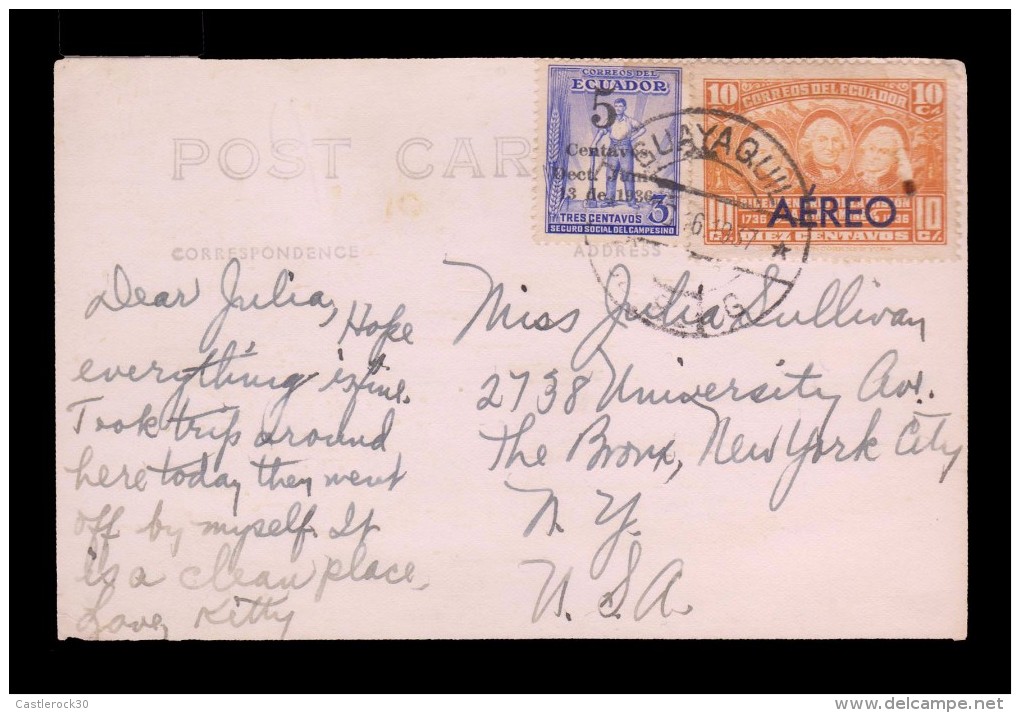 POST CAR
CORRESPONDENCE
ADDRESS
CORREOS DEL
ECUADOR
5
Centavos
Dect. Junio
13 de 1936
TRES CENTAVOS 3
SEGURO SOCIAL DEL CAMPESINO
10 Cs 10 Cs
CORREOS DEL ECUADOR
AÉREO
1736 1936
10 DIEZ CENTAVOS 10
GUAYAQUIL
Dear Julia,
Hope
everything is fine.
Took trip around
here today then went
off by myself. It
is a clean place.
Love, Kitty
Miss Julia Sullivan
2738 University Ave.
The Bronx, New York City
N. Y.
U. S. A.
Castlerock30
delcampe.net